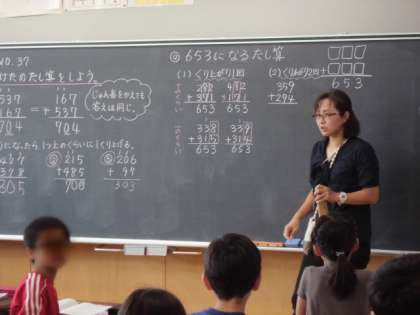 NO.37
けたのたし算をしよう。
537
+167
704
=
167
+537
704
じゅん番をかえても
答えは同じ。
になったら1つ上のくらいに1くり上げる。
215
+485
700
206
+ 97
303
◎653になるたし算
(1)くり上がり1回
653
653
338
+315
653
339
+314
653
(2)くり上がり2回
359
+294
+
653